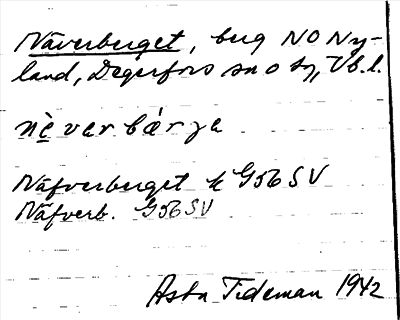 Näverberget, berg NO Ny-
land, Degerfors sn o tg, Vb.l.
nèvarbárja
Näfverberget k G56SV
Näfverb. G56SV
Asta Tideman 1942